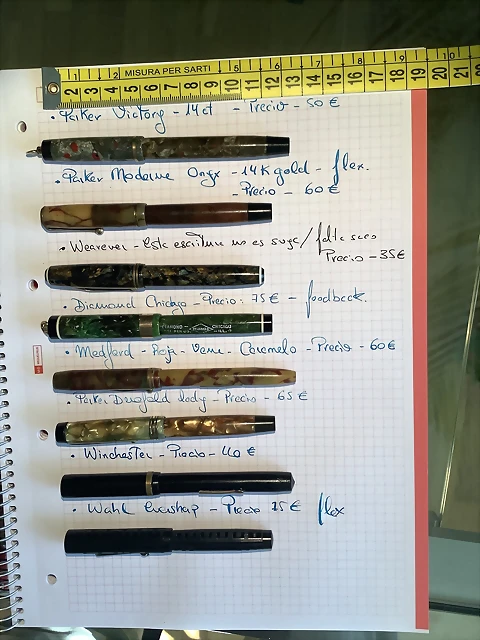 2 3 4 5 6 7 8 9 10 11 12 13 14 15 16 17 18 19 20 21
1 2 MISURA PER SARTI 5 6 7 8
• Parker Victory - 14ct - Precio - 50 €
• Parker Moderne Onyx - 14K gold - flex.
- Precio - 60 €
• Wearever - Esta escritura no es suya/falta saco
Precio - 35€
• Diamond Chicago - Precio: 75 € - feedback.
DIAMOND CHICAGO
• Medford - Roja - Verde - Caramelo - Precio - 60€
• Parker Duofold lady - Precio - 65 €
• Winchester - Precio - 40 €
• Wahl Eversharp - Precio 75 € flex